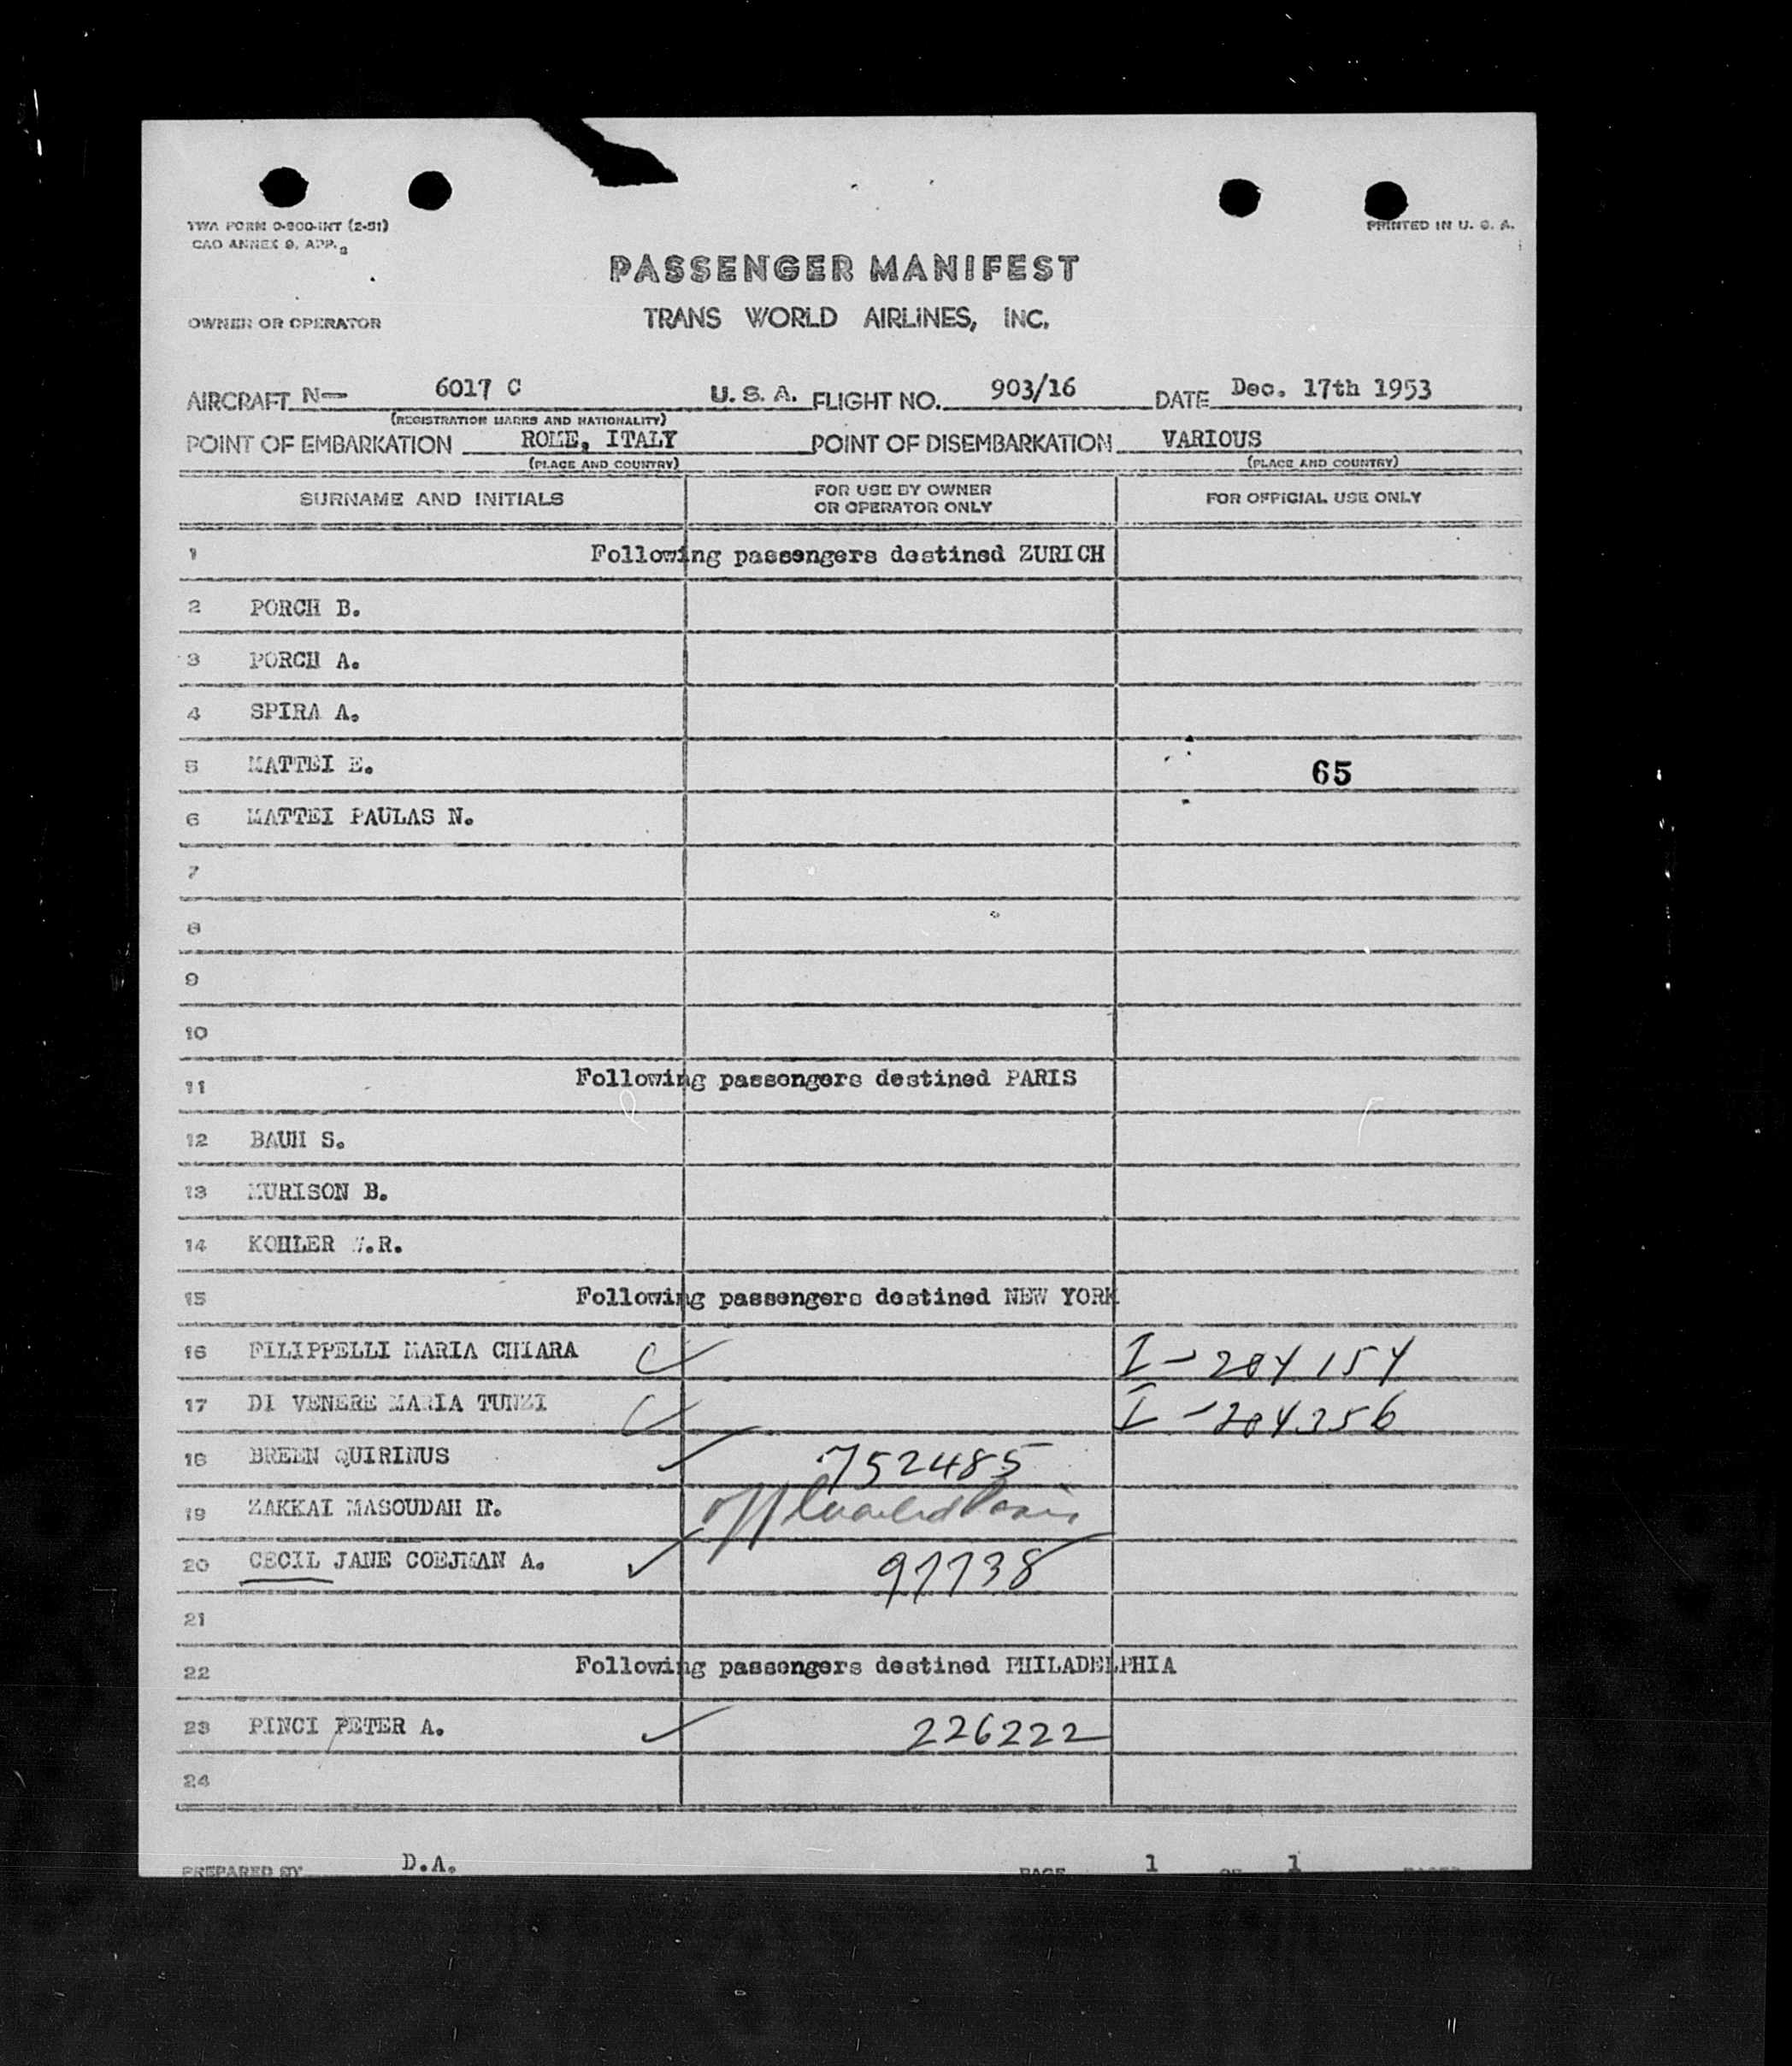 TWA FORM O-900-INT (2-51)
PRINTED IN U. S. A.
CAO ANNEX 9, APP. 2
PASSENGER MANIFEST
OWNER OR OPERATOR TRANS WORLD AIRLINES, INC.
AIRCRAFT N— 6017 C U. S. A. FLIGHT NO. 903/16 DATE Dec. 17th 1953
(REGISTRATION MARKS AND NATIONALITY)
POINT OF EMBARKATION ROME, ITALY POINT OF DISEMBARKATION VARIOUS
(PLACE AND COUNTRY) (PLACE AND COUNTRY)
SURNAME AND INITIALS FOR USE BY OWNER OR OPERATOR ONLY FOR OFFICIAL USE ONLY
1 Following passengers destined ZURICH
2 PORCH B.
3 PORCH A.
4 SPIRA A.
5 MATTEI E. 65
6 MATTEI PAULAS N.
7
8
9
10
11 Following passengers destined PARIS
12 BAUH S.
13 MURISON B.
14 KOHLER W.R.
15 Following passengers destined NEW YORK
16 FILIPPELLI MARIA CHIARA I-204154
17 DI VENERE MARIA TUNZI I-204356
18 BREEN QUIRINUS 752485
19 ZAKKAI MASOUDAH H. offloaded Paris
20 CECIL JANE COEJMAN A. 97738
21
22 Following passengers destined PHILADELPHIA
23 PINCI PETER A. 226222
24
PREPARED BY D.A. PAGE 1 OF 1 PAGES